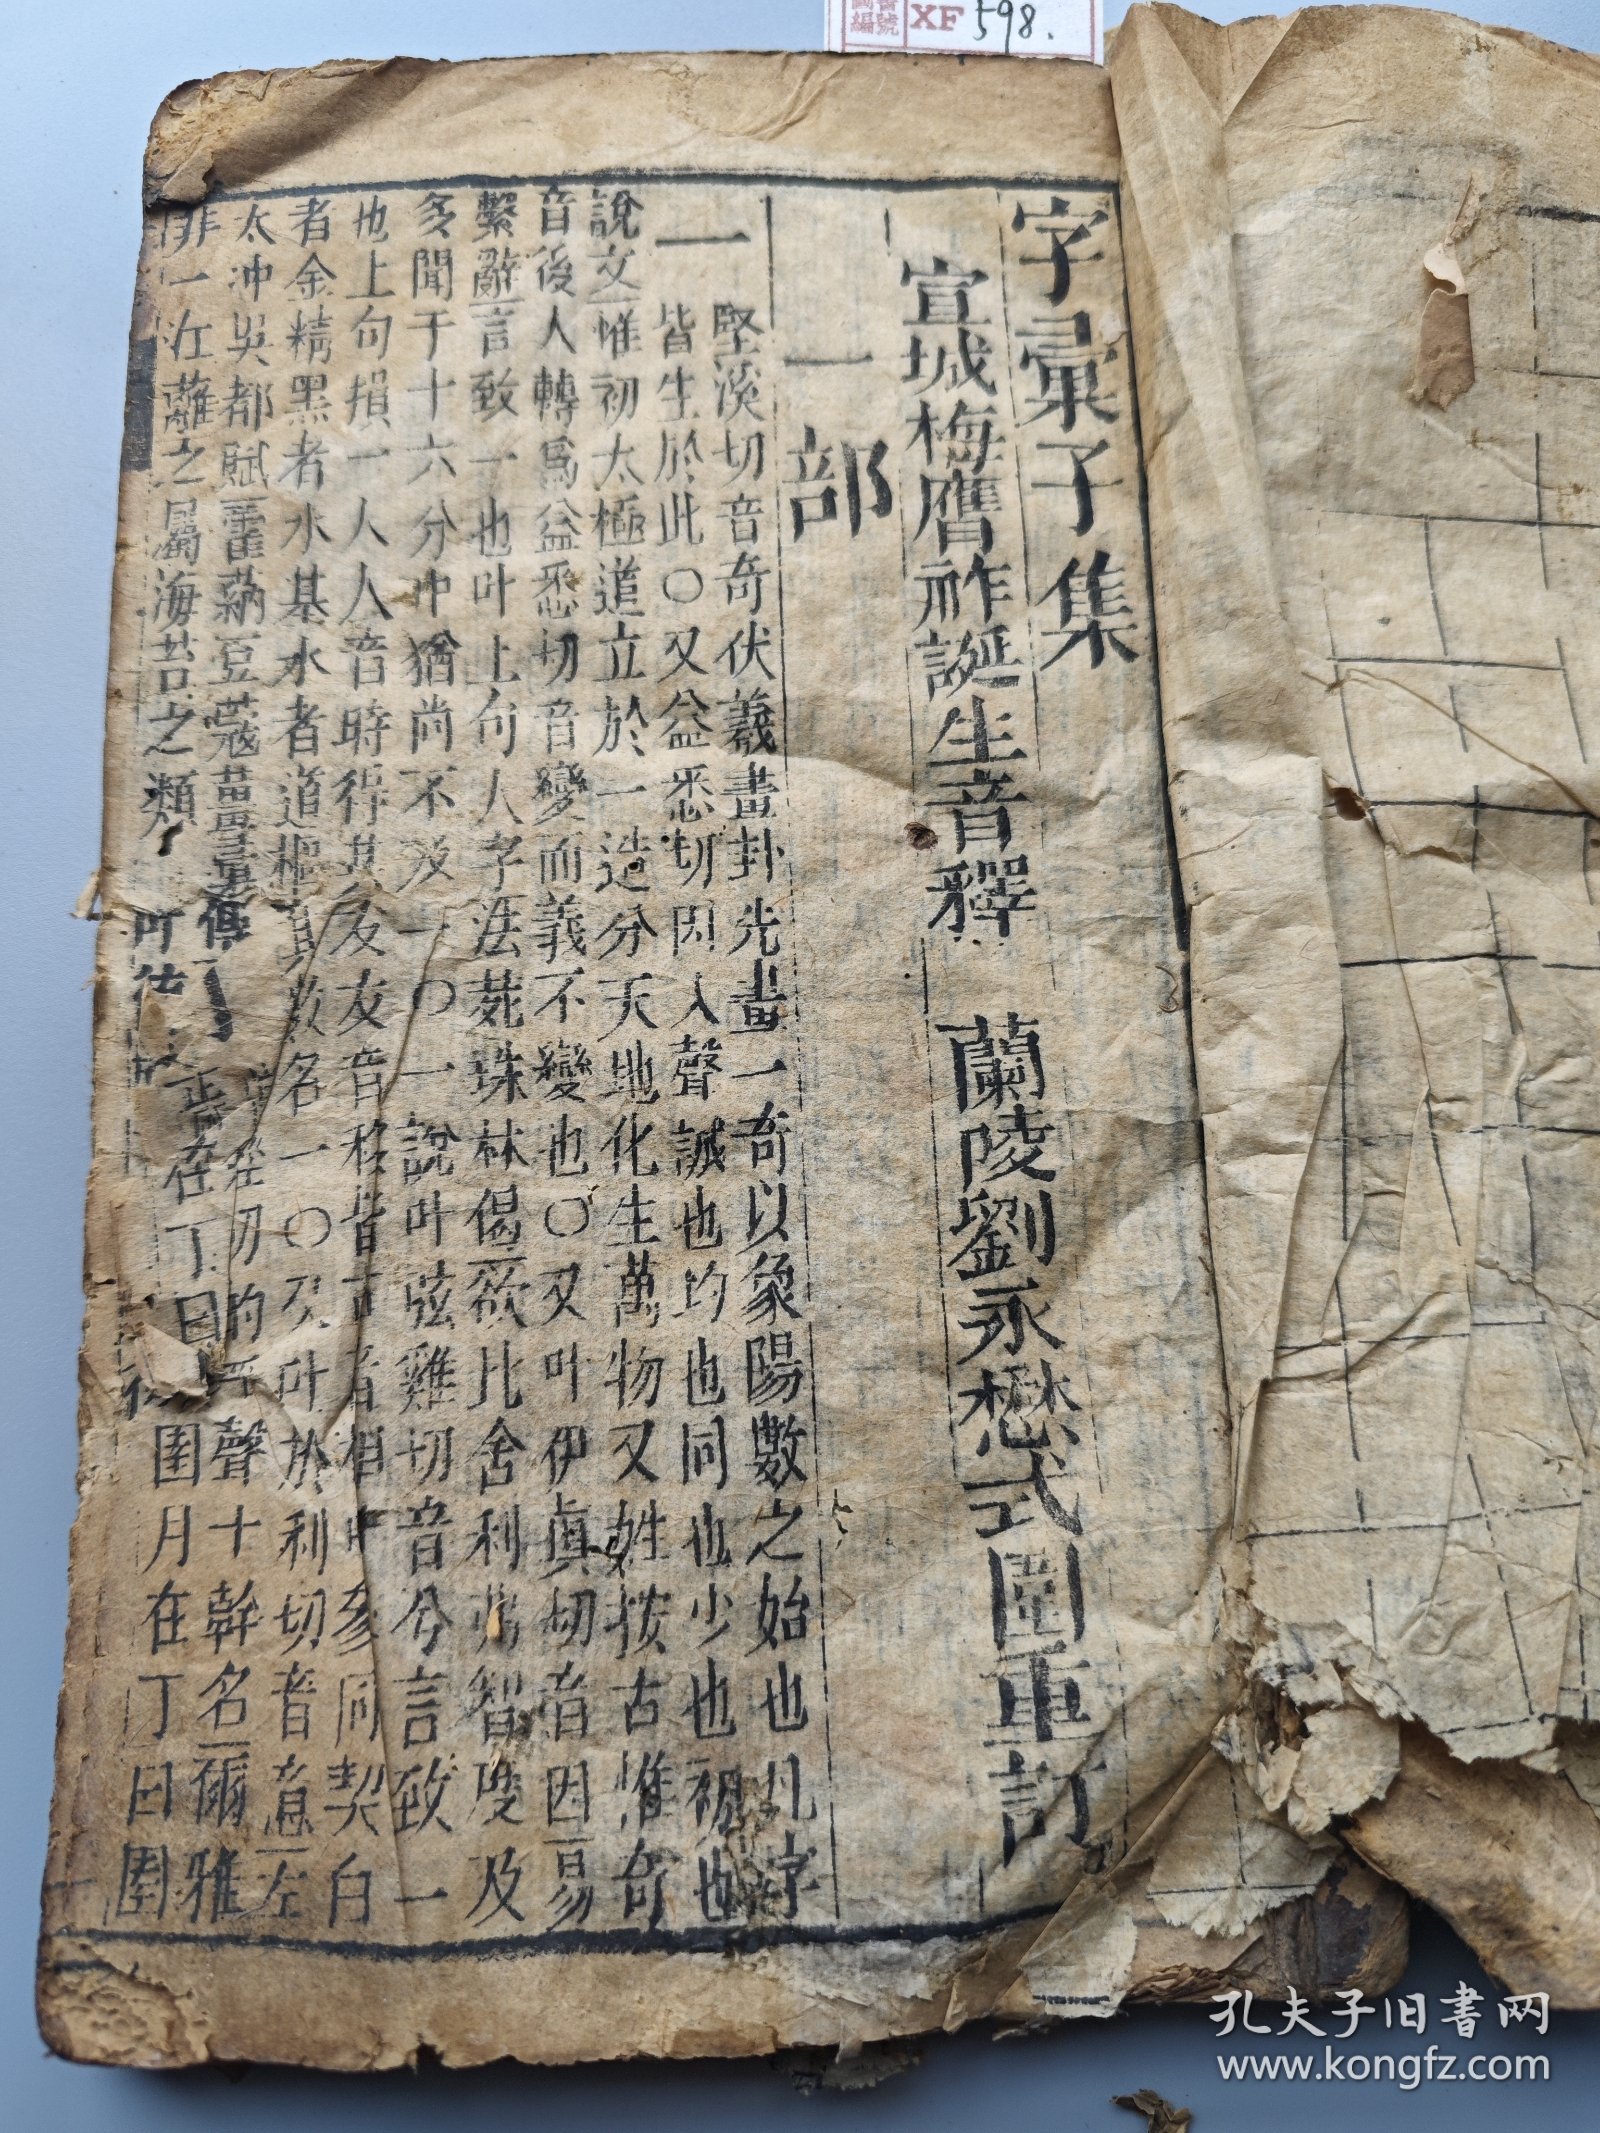 XF 598.
字彙子集
宣城梅膺祚誕生音釋 蘭陵劉永懋式圃重訂
一部
一 堅溪切音奇伏羲畫卦先畫一奇以象陽數之始也凡字
皆生於此〇又益悉切因入聲誠也均也同也少也初也
說文惟初太極道立於一造分天地化生萬物又姓按古惟奇
音後人轉爲益悉切音變而義不變也〇又叶伊眞切音因易
繫辭言致一也叶上句人字法苑珠林偈欲比舍利弗智及
多聞于十六分中猶尚不及一〇一說叶弦雞切音兮言致一
也上句損一人人音時得其友友音移皆古音相叶參同契白
者金精黑者水基水者道樞其數名一〇又叶於利切音意左
太冲吳都賦藿蒳豆蔻薑彙
非一江蘺之屬海苔之類
丁 切的平聲十幹名爾雅
在丁曰圉月在丁曰圉
孔夫子旧书网
www.kongfz.com